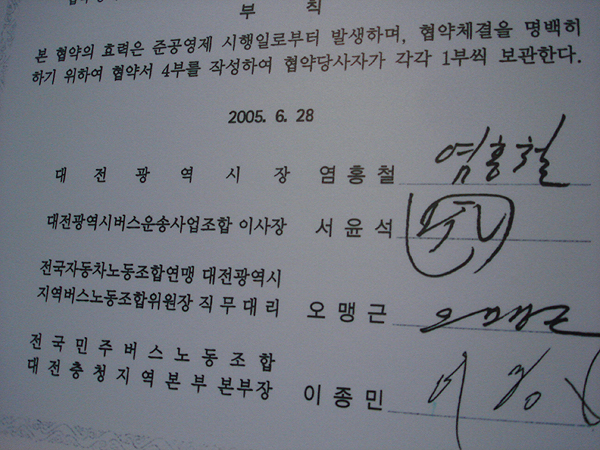 부 칙
본 협약의 효력은 준공영제 시행일로부터 발생하며, 협약체결을 명백히
하기 위하여 협약서 4부를 작성하여 협약당사자가 각각 1부씩 보관한다.
2005. 6. 28
대 전 광 역 시 장 염 홍 철 염홍철
대전광역시버스운송사업조합 이사장 서 윤 석
전국자동차노동조합연맹 대전광역시
지역버스노동조합위원장 직 무 대 리 오 맹 근 오맹근
전 국 민 주 버 스 노 동 조 합
대 전 충 청 지 역 본 부 본 부 장 이 종 민